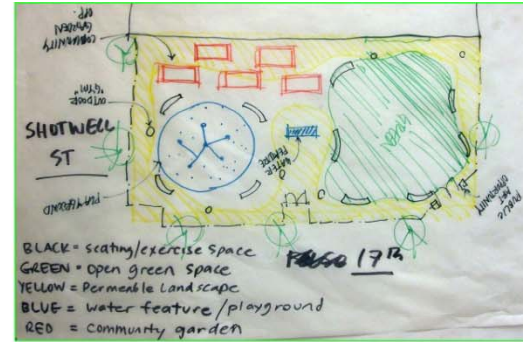 COMMUNITY
GARDEN
OPP.
OUTDOOR
"GYM"
SHOTWELL
ST
PLAYGROUND
WATER
FEATURE
GREEN
PUBLIC
ART
OPPORTUNITY
17th
BLACK = seating/exercise space
GREEN = open green space
YELLOW = Permeable Landscape
BLUE = water feature/playground
RED = community garden